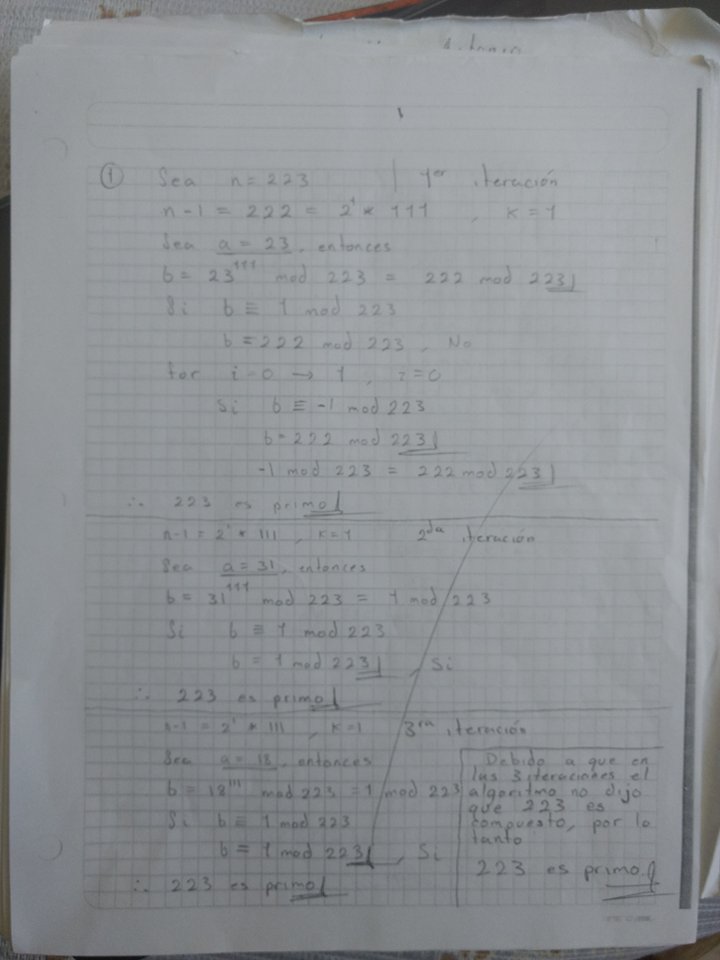 ① Sea n = 223 | 1er iteración
n-1 = 222 = 2^1 * 111 , K = 1
Sea a = 23, entonces
b = 23^111 mod 223 = 222 mod 223
Si b ≡ 1 mod 223
b = 222 mod 223 , No
for i=0 → 1 , i=0
Si b ≡ -1 mod 223
b = 222 mod 223
-1 mod 223 = 222 mod 223
∴ 223 es primo
n-1 = 2^1 * 111 , K=1 2da iteración
Sea a = 31, entonces
b = 31^111 mod 223 = 1 mod 223
Si b ≡ 1 mod 223
b = 1 mod 223 , Si
∴ 223 es primo
n-1 = 2^1 * 111 , K=1 3ra iteración
Sea a = 18, entonces
b = 18^111 mod 223 = 1 mod 223
Si b ≡ 1 mod 223
b = 1 mod 223 , Si
∴ 223 es primo
Debido a que en
las 3 iteraciones el
algoritmo no dijo
que 223 es
compuesto, por lo
tanto
223 es primo.